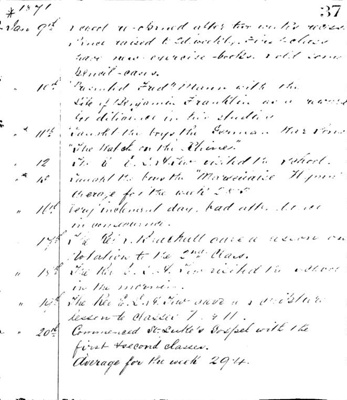 * 1871 37
Jan 9th School re-opened after two weeks recess.
Price raised to 2d weekly. First class
have new exercise books. Sold some
pencil-cases.
" 10th Presented Fredk Mann with the
Life of Benjamin Franklin as a reward
for diligence in his studies
" 11th Taught the boys the German War Song
"The Watch on the Rhine"
" 12 The visited the school.
" 13 Taught the boys the "Marseillaise Hymn"
Average for the week 255
" 16th Very inclement day, bad attendance
in consequence.
17th The Rev. Marshall gave a lesson on
Notation to the 2nd Class.
" 18th The Rev. E. L. A. Tew visited the school
in the morning.
" 19th The Rev. E. L. A. Tew gave a Scripture
lesson to classes I. & II.
" 20th Commenced St. Luke's Gospel with the
first & second classes.
Average for the week 294.